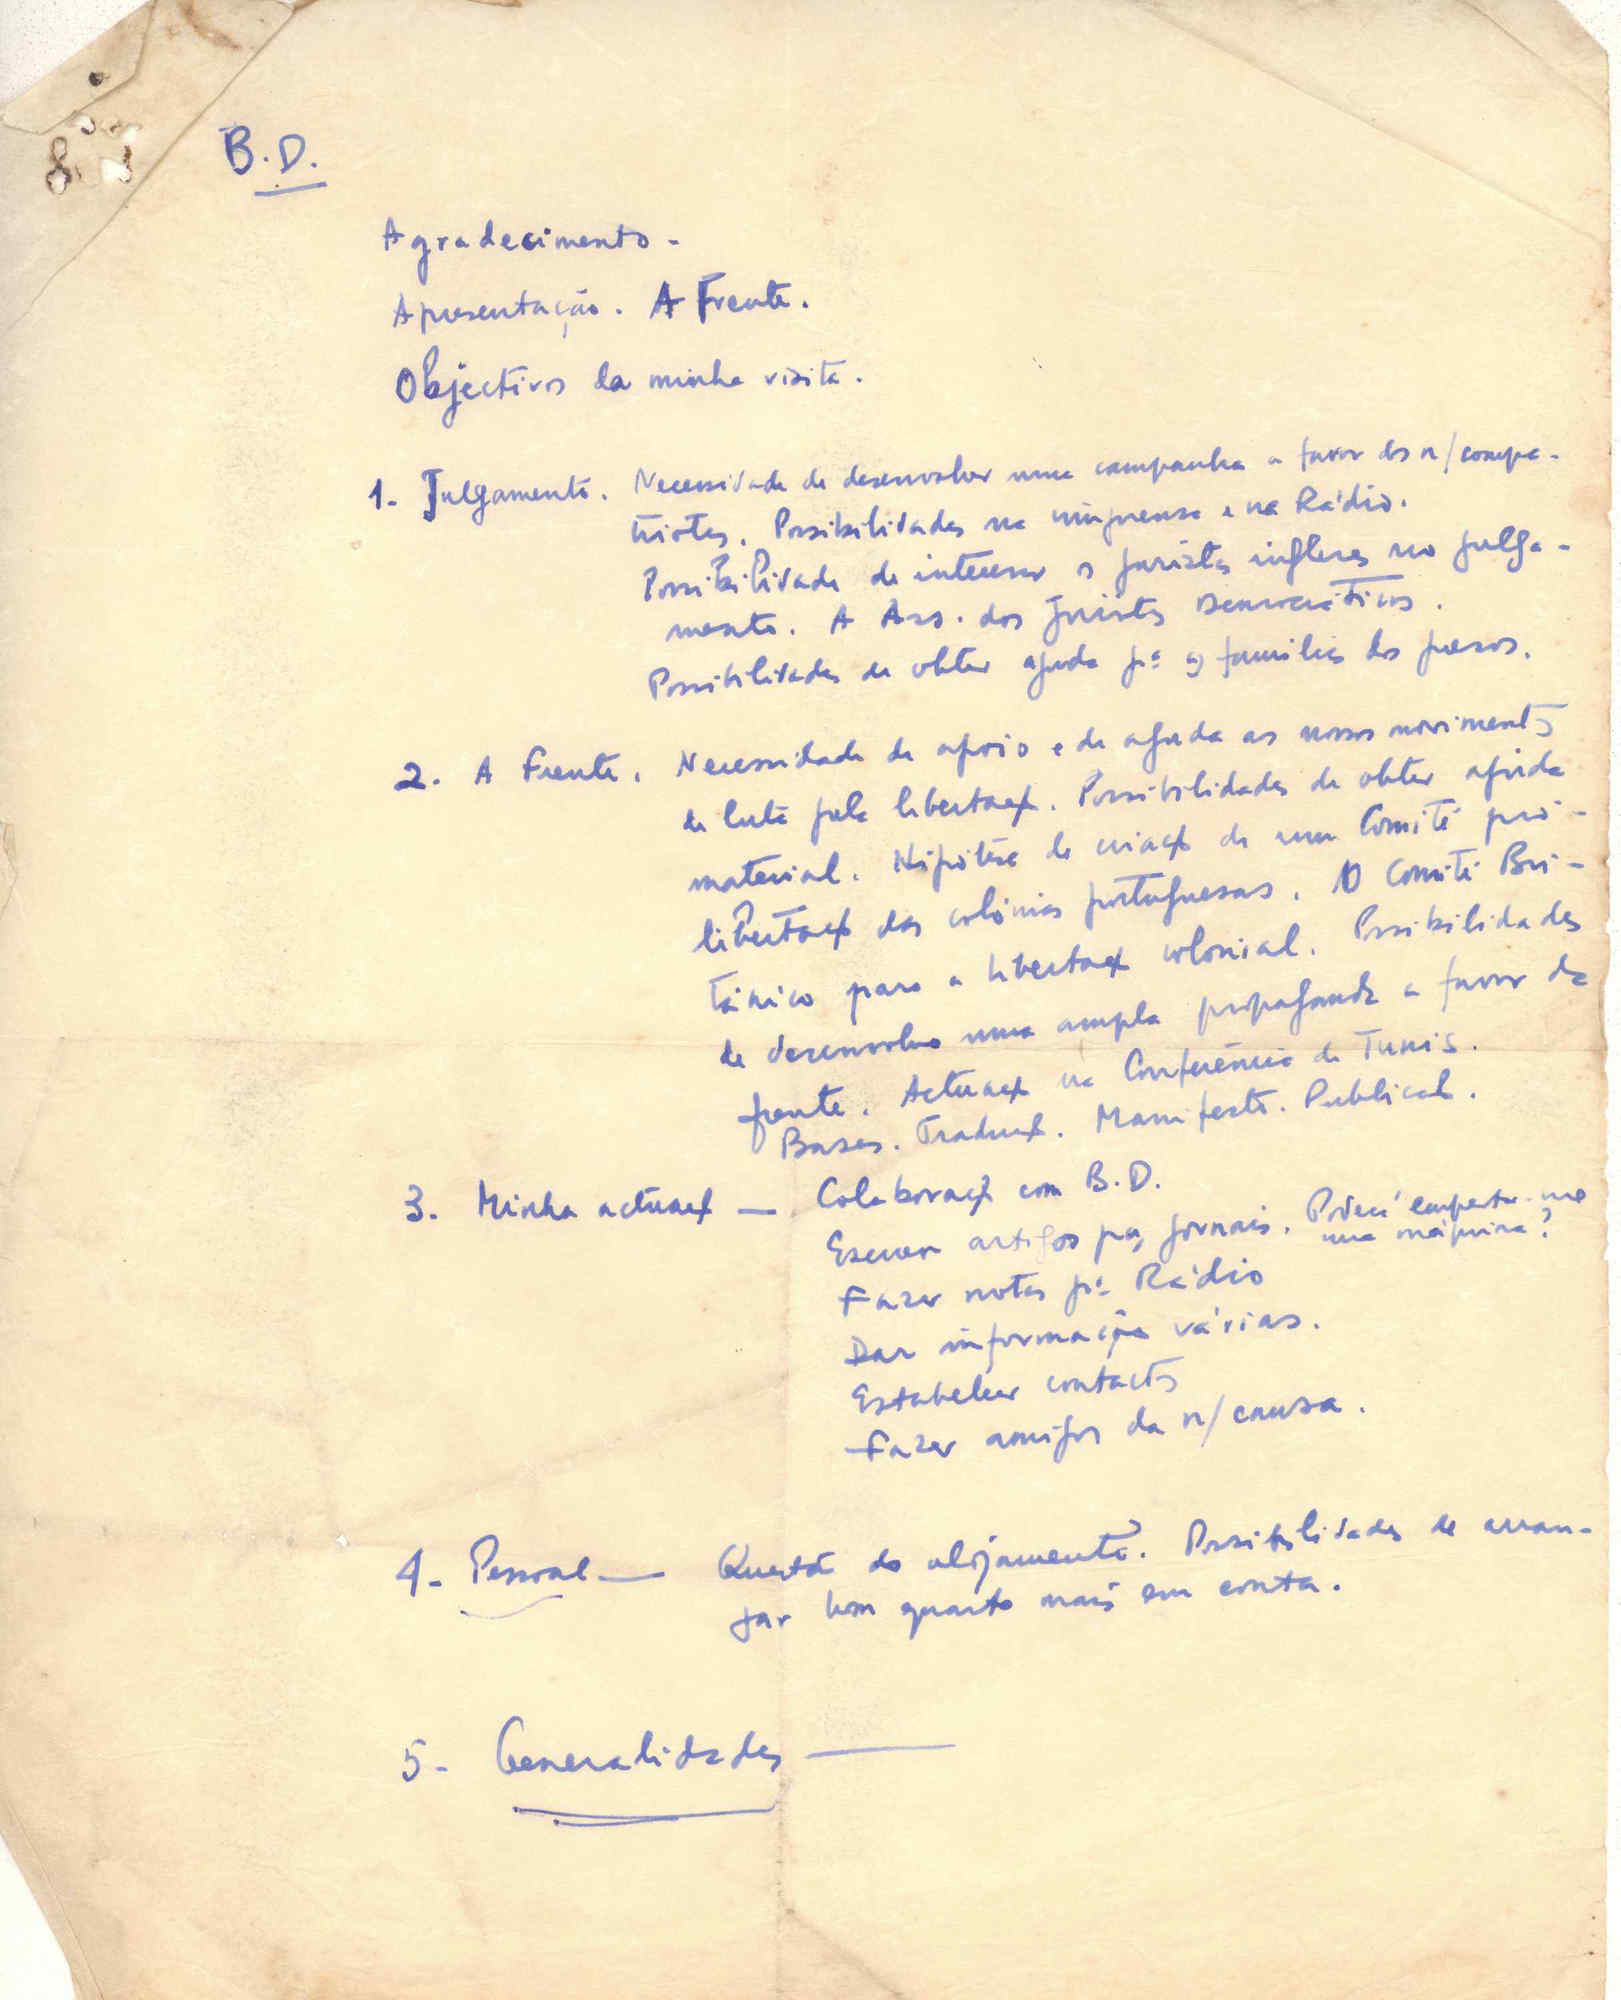 B.D.
Agradecimento -
Apresentação. A Frente.
Objectivos da minha visita.
1- Julgamento. Necessidade de desenvolver uma campanha a favor dos n/compa-
triotas. Possibilidades na imprensa e na Rádio.
Possibilidade de interessar os juristas ingleses no julga-
mento. A Ass. dos Juristas Democráticos.
Possibilidades de obter ajuda pª as famílias dos presos.
2. A Frente. Necessidade de apoio e de ajuda aos nossos movimentos
de luta pela libertaç. Possibilidades de obter ajuda
material. Hipótese de criaç de um Comité pró-
libertaç das colónias portuguesas. O Comité Bri-
tânico para a libertaç colonial. Possibilidades
de desenvolver uma ampla propaganda a favor da
frente. Actuaç na Conferência de Tunis.
Bases. Traduç. Manifesto. Publicaç.
3. Minha actuaç — Colaboraç com B.D.
Escrever artigos pª jornais. Poderá emprestar-me
uma máquina?
Fazer notas pª Rádio
Dar informação várias.
Estabelecer contactos
Fazer amigos da n/causa.
4- Pessoal — Questão do alojamento. Possibilidades de arran-
jar bom quarto mais em conta.
5- Generalidades —